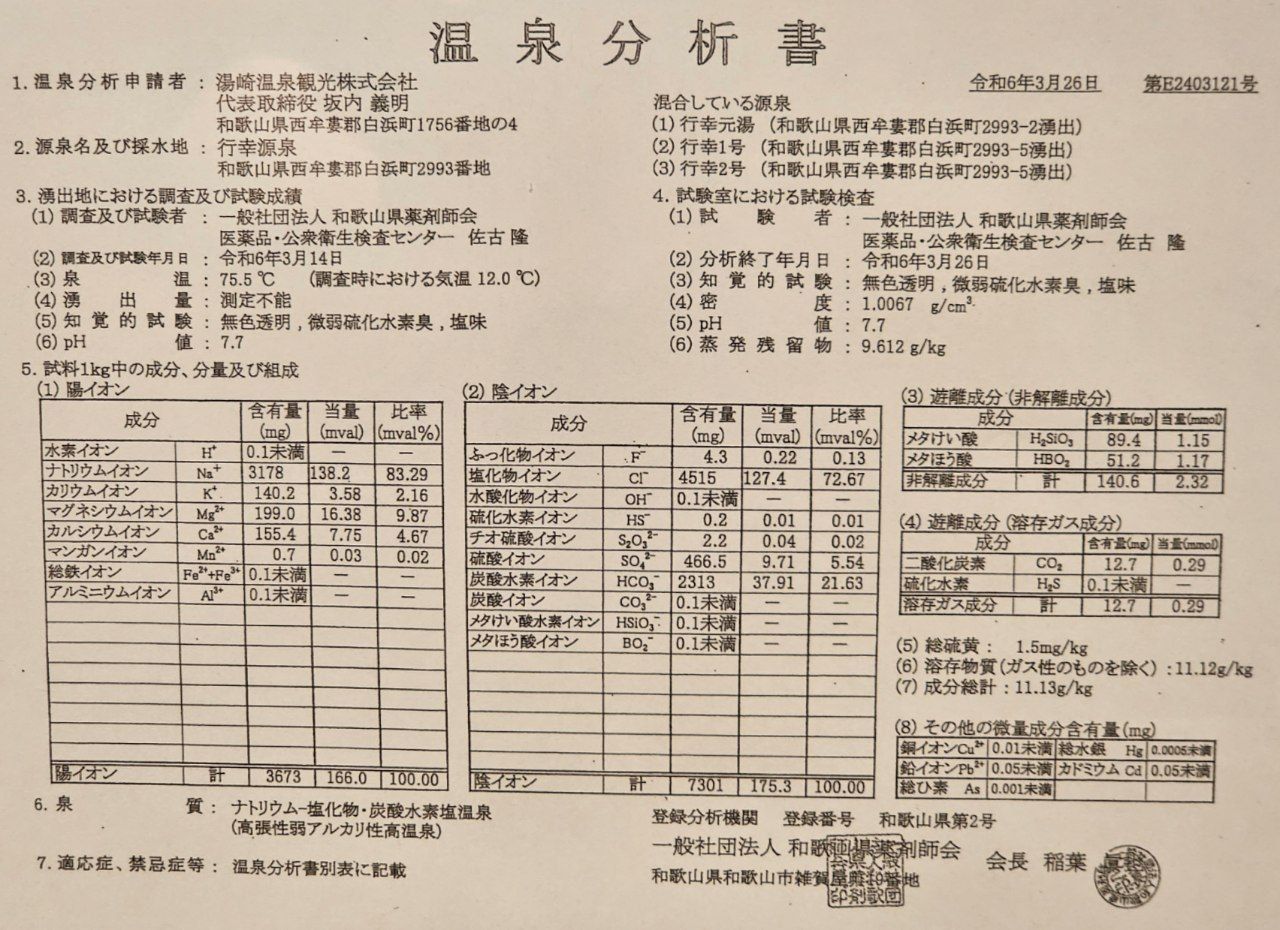 温泉分析書
1. 温泉分析申請者 : 湯崎温泉観光株式会社
代表取締役 坂内 義明
和歌山県西牟婁郡白浜町1756番地の4
2. 源泉名及び採水地 : 行幸源泉
和歌山県西牟婁郡白浜町2993番地
令和6年3月26日 第E2403121号
混合している源泉
(1) 行幸元湯 (和歌山県西牟婁郡白浜町2993-2湧出)
(2) 行幸1号 (和歌山県西牟婁郡白浜町2993-5湧出)
(3) 行幸2号 (和歌山県西牟婁郡白浜町2993-5湧出)
3. 湧出地における調査及び試験成績
(1) 調査及び試験者 : 一般社団法人 和歌山県薬剤師会
医薬品・公衆衛生検査センター 佐古 隆
(2) 調査及び試験年月日 : 令和6年3月14日
(3) 泉温 : 75.5 ℃ (調査時における気温 12.0 ℃)
(4) 湧出量 : 測定不能
(5) 知覚的試験 : 無色透明 , 微弱硫化水素臭 , 塩味
(6) pH値 : 7.7
4. 試験室における試験検査
(1) 試験者 : 一般社団法人 和歌山県薬剤師会
医薬品・公衆衛生検査センター 佐古 隆
(2) 分析終了年月日 : 令和6年3月26日
(3) 知覚的試験 : 無色透明 , 微弱硫化水素臭 , 塩味
(4) 密度 : 1.0067 g/cm³
(5) pH値 : 7.7
(6) 蒸発残留物 : 9.612 g/kg
5. 試料1kg中の成分、分量及び組成
(1) 陽イオン
成分 含有量(mg) 当量(mval) 比率(mval%)
水素イオン H⁺ 0.1未満 ― ―
ナトリウムイオン Na⁺ 3178 138.2 83.29
カリウムイオン K⁺ 140.2 3.58 2.16
マグネシウムイオン Mg²⁺ 199.0 16.38 9.87
カルシウムイオン Ca²⁺ 155.4 7.75 4.67
マンガンイオン Mn²⁺ 0.7 0.03 0.02
総鉄イオン Fe²⁺+Fe³⁺ 0.1未満 ― ―
アルミニウムイオン Al³⁺ 0.1未満 ― ―
陽イオン 計 3673 166.0 100.00
(2) 陰イオン
成分 含有量(mg) 当量(mval) 比率(mval%)
ふっ化物イオン F⁻ 4.3 0.22 0.13
塩化物イオン Cl⁻ 4515 127.4 72.67
水酸化物イオン OH⁻ 0.1未満 ― ―
硫化水素イオン HS⁻ 0.2 0.01 0.01
チオ硫酸イオン S₂O₃²⁻ 2.2 0.04 0.02
硫酸イオン SO₄²⁻ 466.5 9.71 5.54
炭酸水素イオン HCO₃⁻ 2313 37.91 21.63
炭酸イオン CO₃²⁻ 0.1未満 ― ―
メタけい酸水素イオン HSiO₃⁻ 0.1未満 ― ―
メタほう酸イオン BO₂⁻ 0.1未満 ― ―
陰イオン 計 7301 175.3 100.00
(3) 遊離成分 (非解離成分)
成分 含有量(mg) 当量(mmol)
メタけい酸 H₂SiO₃ 89.4 1.15
メタほう酸 HBO₂ 51.2 1.17
非解離成分 計 140.6 2.32
(4) 遊離成分 (溶存ガス成分)
成分 含有量(mg) 当量(mmol)
二酸化炭素 CO₂ 12.7 0.29
硫化水素 H₂S 0.1未満 ―
溶存ガス成分 計 12.7 0.29
(5) 総硫黄 : 1.5mg/kg
(6) 溶存物質 (ガス性のものを除く) : 11.12g/kg
(7) 成分総計 : 11.13g/kg
(8) その他の微量成分含有量(mg)
銅イオンCu²⁺ 0.01未満 総水銀 Hg 0.0005未満
鉛イオンPb²⁺ 0.05未満 カドミウム Cd 0.05未満
総ひ素 As 0.001未満
6. 泉質 : ナトリウム-塩化物・炭酸水素塩温泉
(高張性弱アルカリ性高温泉)
7. 適応症、禁忌症等 : 温泉分析書別表に記載
登録分析機関 登録番号 和歌山県第2号
一般社団法人 和歌山県薬剤師会 会長 稲葉
和歌山県和歌山市雑賀屋町19番地